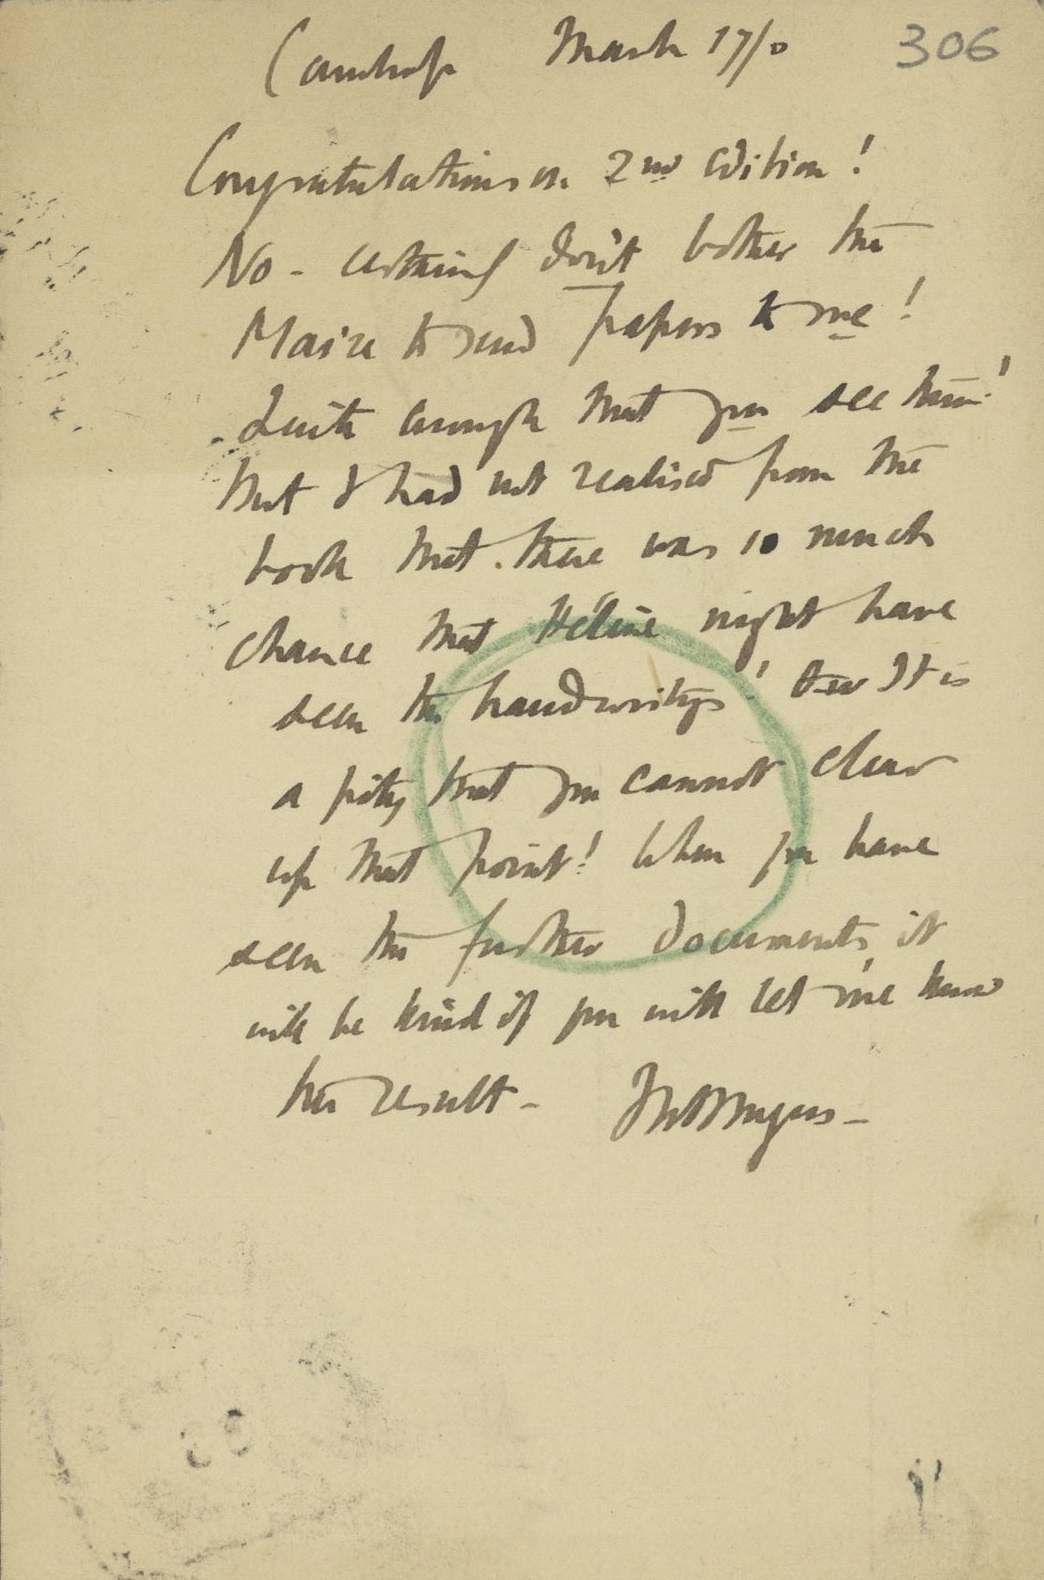 Cambdge March 17/0 306
Congratulations on 2nd edition!
No - certainly don't bother the
Maire to send papers to me!
Quite enough that you see them!
But I had not realised from the
book that there was so much
chance that Hélène might have
seen the handwritings! It is
a pity that you cannot clear
up that point! When you have
seen the further documents, it
will be kind if you will let me know
the result - FWH Myers -